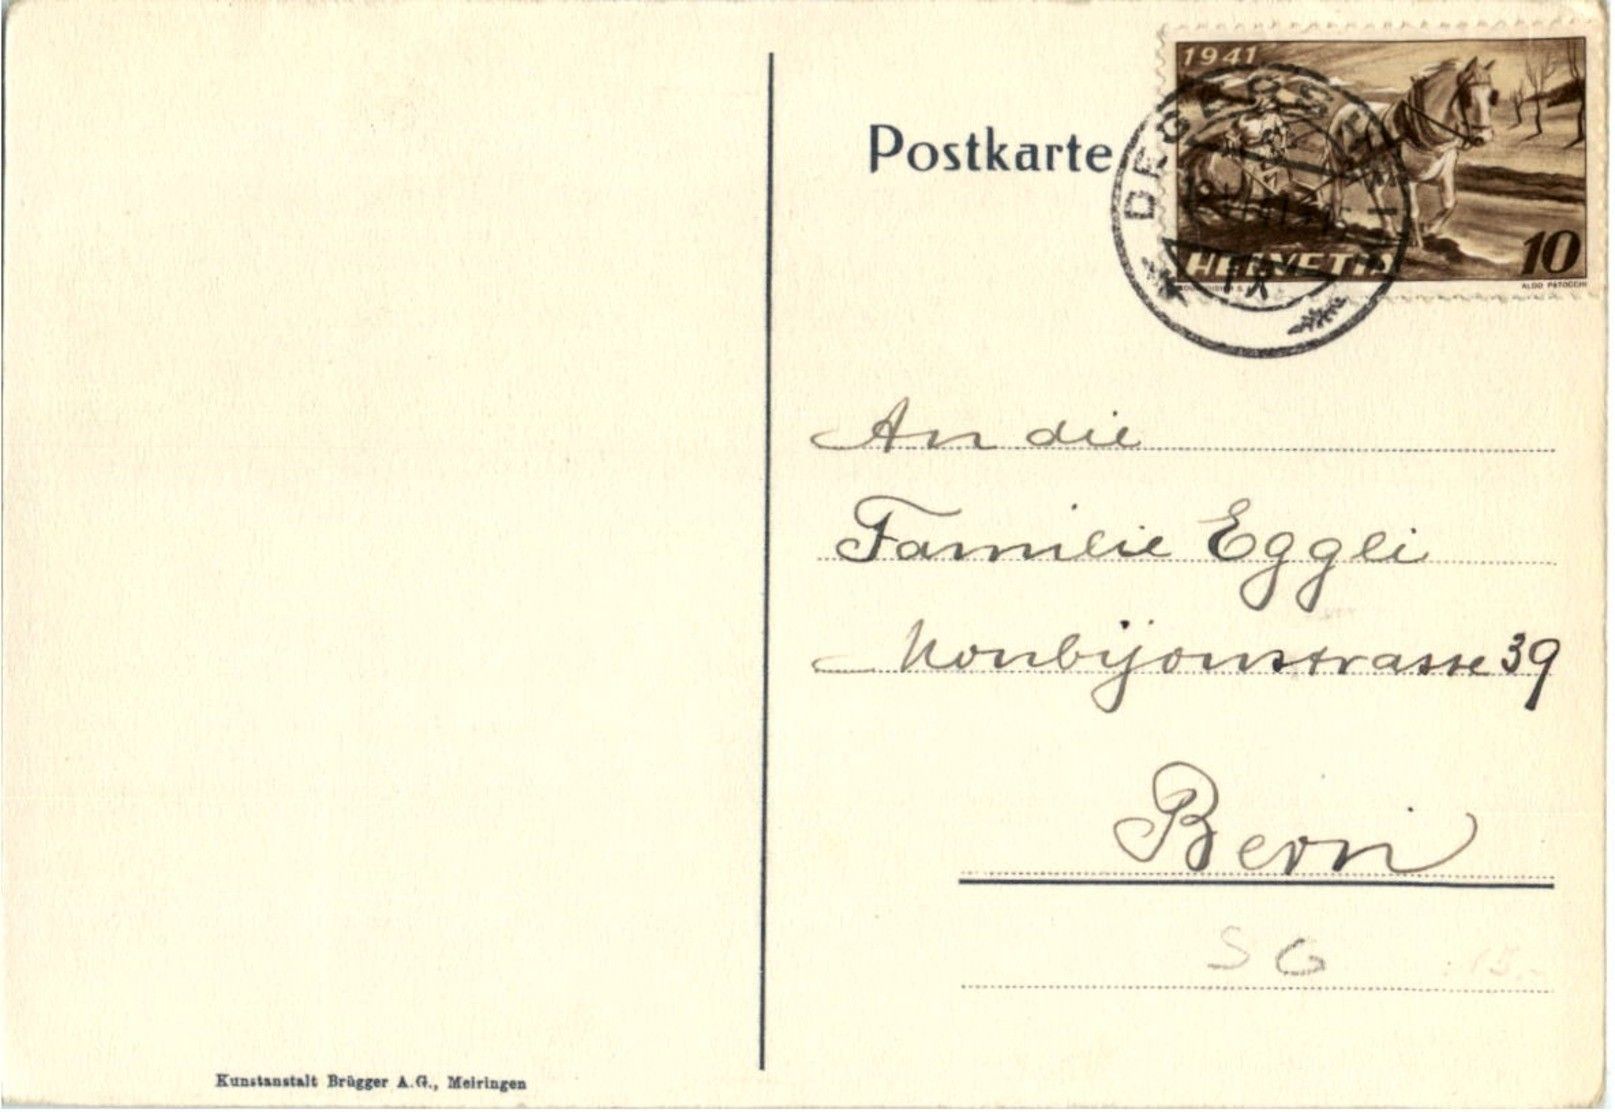 1941
Postkarte
DEGERSHEIM
HELVETIA
10
ALDO PATOCCHI
An die
Familie Eggli
Monbijoustrasse 39
Bern
SG
15.-
Kunstanstalt Brügger A.G., Meiringen